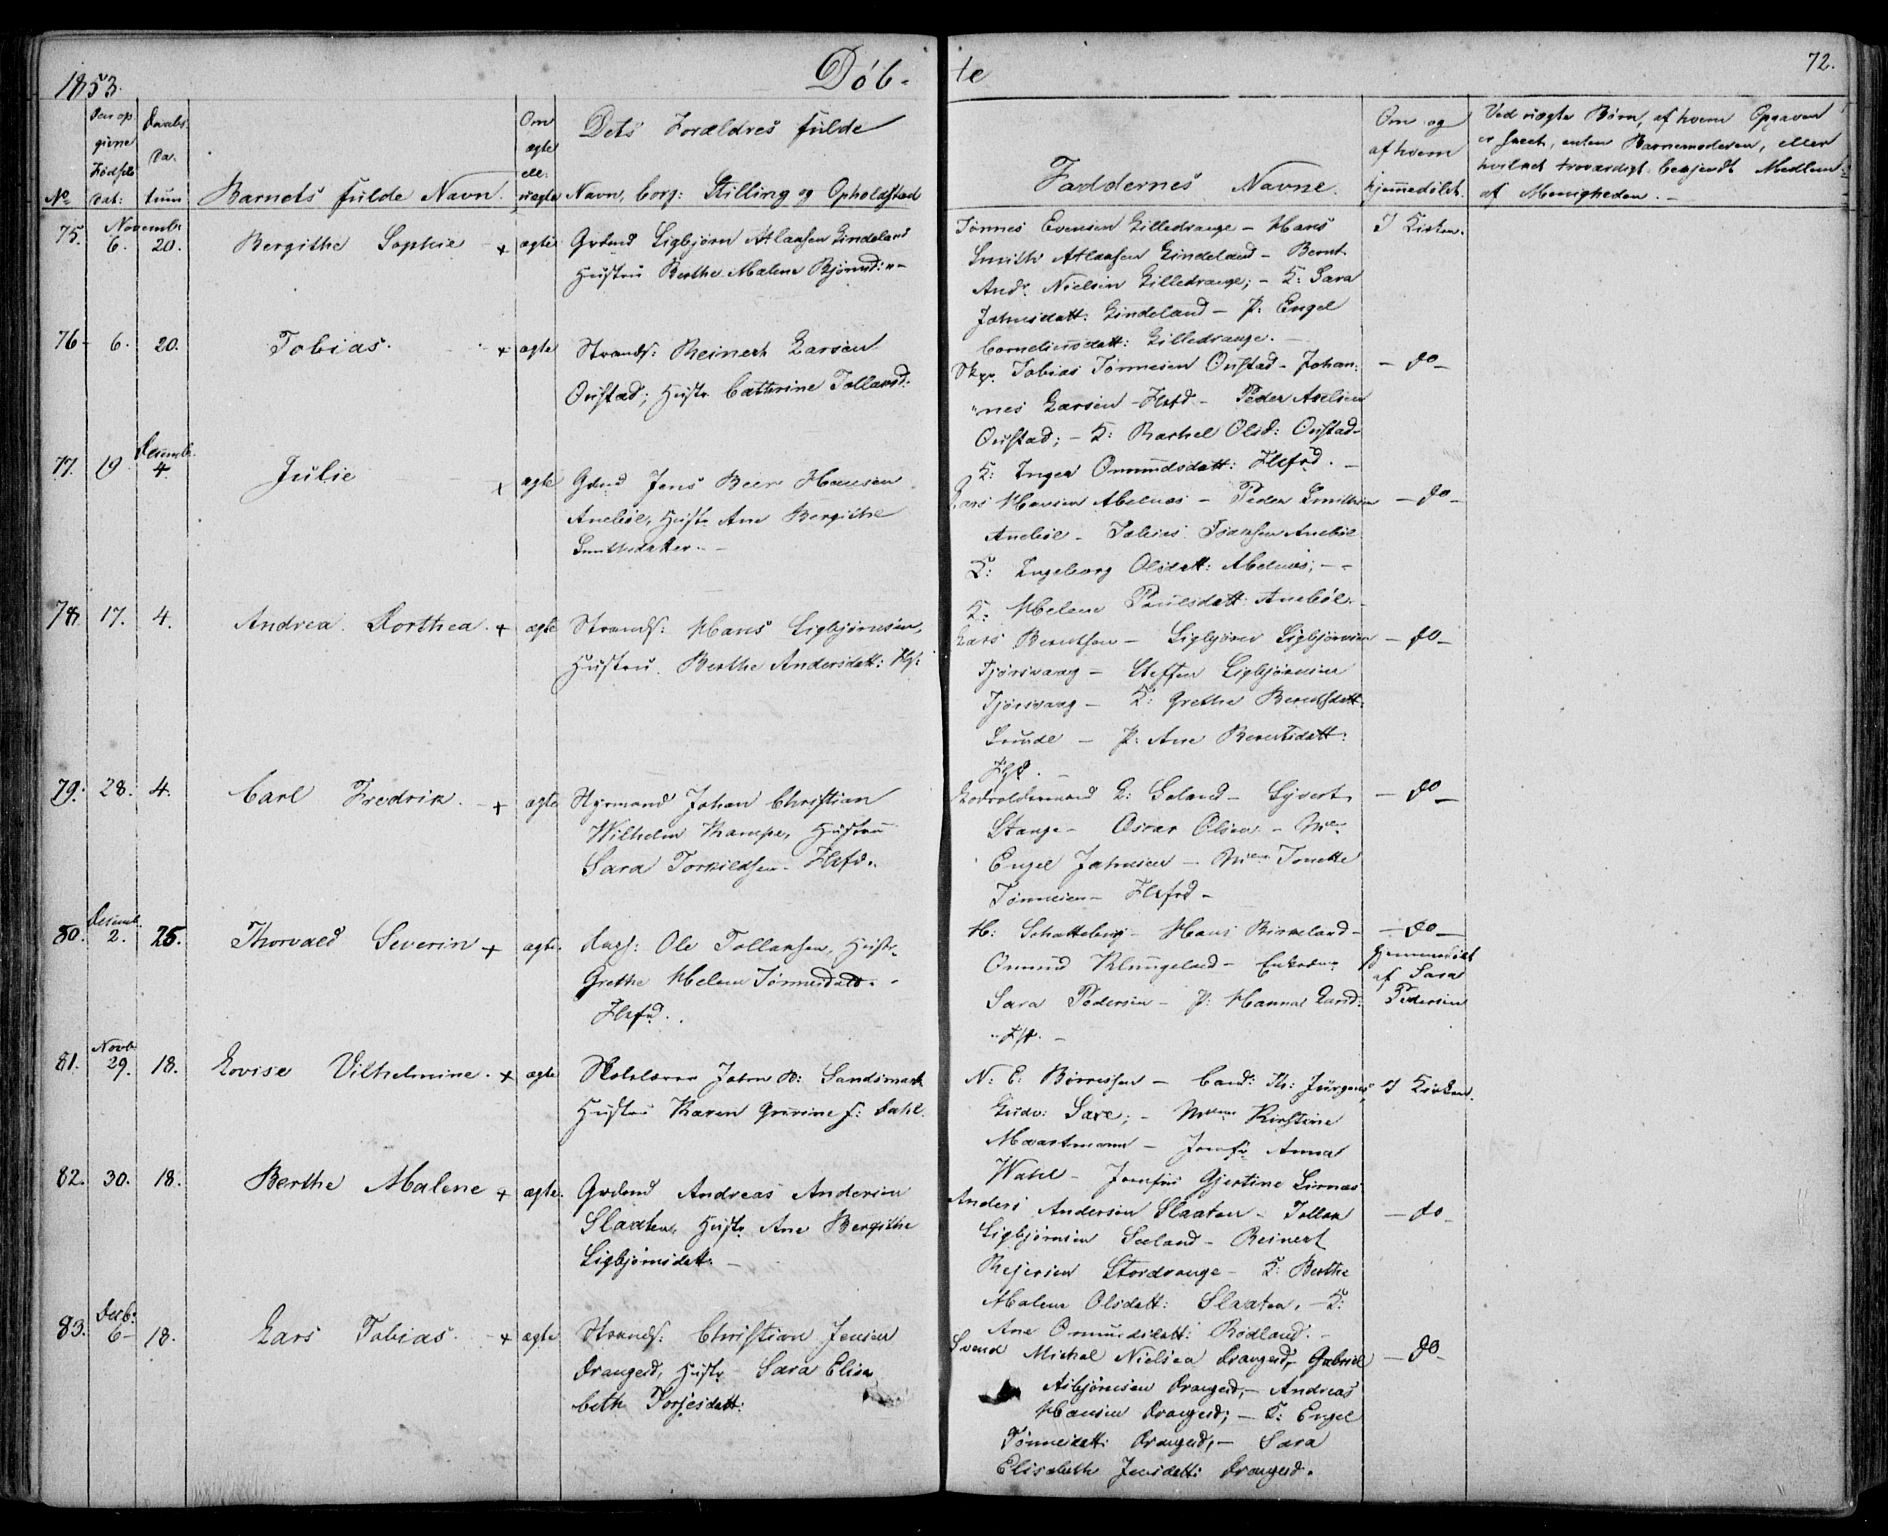 1853.
Døb-
te
72.
No
Den op
givne
Fødsels
Dat:
Daabs
Da-
tum
Barnets fulde Navn.
Om
ægte
ell:
uægte
Dets Forældres fulde
Navn, borg: Stilling og Opholdsted
Faddernes Navne.
Om og
af hvem
hjemmedøbt
Ved uægte Børn, af hvem Opgaven
er skeet, enten Barnemoderen, eller
hvilket troværdigt bekjendt Medlem
af Menigheden. -
75. Novembr 6. 20. Bergithe Sophie + ægte Grdmd Sigbjørn Atlaksen Lindeland
Hustru Berthe Malene Bjørnsd:
Tønnes Evensen Lilledrange - Hans
Smith Atlaksen Lindeland - Bernt
Andr. Nielsen Lilledrange; - K: Sara
Jahnsdatt: Lindeland - P: Engel
Corneliusdatt: Lilledrange. -
I Kirken.
76 6. 20. Tobias. + ægte Strands: Reinert Larsen
Oustad; Hustr Cathrine Tollaksd:
Skpr. Tobias Tønnesen Oustad - Johan-
nes Larsen Flkfd - Peder Axelsen
Oustad; - K: Rachel Olsd: Oustad-
K: Inger Omundsdatt: Flkfd. -
- do -
77. 19. Decemb. 4. Julie + ægte Grdmd Jens Beer Hansen
Aneböe, Hustr Ane Bergithe
Smithsdatter. -
Lars Hansen Abelnæs - Peder Smithsen
Aneböe - Tobias Isaksen Aneböe
K: Ingeborg Olsdatt: Abelnæs; - -
K: Helene Paulsdatt: Aneböe.
- do -
78. 17. 4. Andrea Dorthea. + ægte Strands: Hans Sigbjørnsen,
Hustru Berthe Andersdatt:
Lars Berntsen - Sigbjørn Sigbjørnsen
Tjørsvaag - Steffen Sigbjørnsen
Tjørsvaag - K: Grethe Berntsdatt:
Lunde - P: Ane Berntsdatt:
- do -
79. 28. 4. Carl Fredrik. + ægte Styrmand Johan Christian
Wilhelm Kampe, Hustru
Sara Torkildsen. Flkfd.
Sivert
Stange - Oscar Olsen - Mlle
Engel Jahnsen - Mlle Tonette
Tønnesen - Flkfd -
- do -
80. Decemb. 2. 26. Thorvald Severin + ægte. Dags: Ole Tollaksen, Hustr.
Grethe Helene Tønnesdatt. -
Flkfd.
H: Schatteberg - Hans Birkeland -
Omund Klungeland - Enkedme
Sara Pedersen - P: Hanna Lund:
- do -
hjemmedøbt
af Sara
Pedersen
81. Novb 29. 18. Lovise Vilhelmine. + ægte Skolelærer John B: Sandsmark
Hustru Karen Gurine f: Dahl.
N: E: Børresen - Cand: Th: Jürgens,
Ludv: Saxe; - Mdme Kirstine
Maartmann - Jomfr Anna
Wahl - Jomfru Gjertine Lirnæs
I Kirken.
82. 30. 18. Berthe Malene + ægte. Grdmd Andreas Andersen
Slaaten, Hustr Ane Bergithe
Sigbjørnsdatt. -
Anders Andersen Slaaten - Tollak
Sigbjørnsen Seland - Reinert
Rejersen Stordrange - K: Berthe
Malene Olsdatt: Slaaten, - K:
Ane Omundsdatt: Rødland. -
- do -
83. Decb: 6 18. Lars Tobias. + ægte Strands: Christian Jensen
Drangeid, Hustr Sara Elisa
beth Torjesdatt:
Svend Michal Nielsen Drangeid, Gabriel
Asbjørnsen Drangeid, - Andreas
Hansen Drangeid; - K: Engel
Tønnesdatt: Drangeid, - Sara
Elisabeth Jensdatt: Drangeid.
- do -